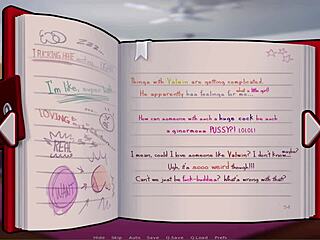 I'm like, super
LOVING
REAL
WANT
Things with Valein are getting complicated.
He apparently has feelings for me...
what a little girl!
How can someone with such a huge cock be such
a ginormous PUSSY?! LOLOL!
I mean, could I love someone like Valein? I don't know...
maybe?
Ugh, it's sooo weird though!!!
Can't we just be fuck-buddies? What's wrong with that?
54
Hide Skip Auto Save Q.Save Q.Load Prefs